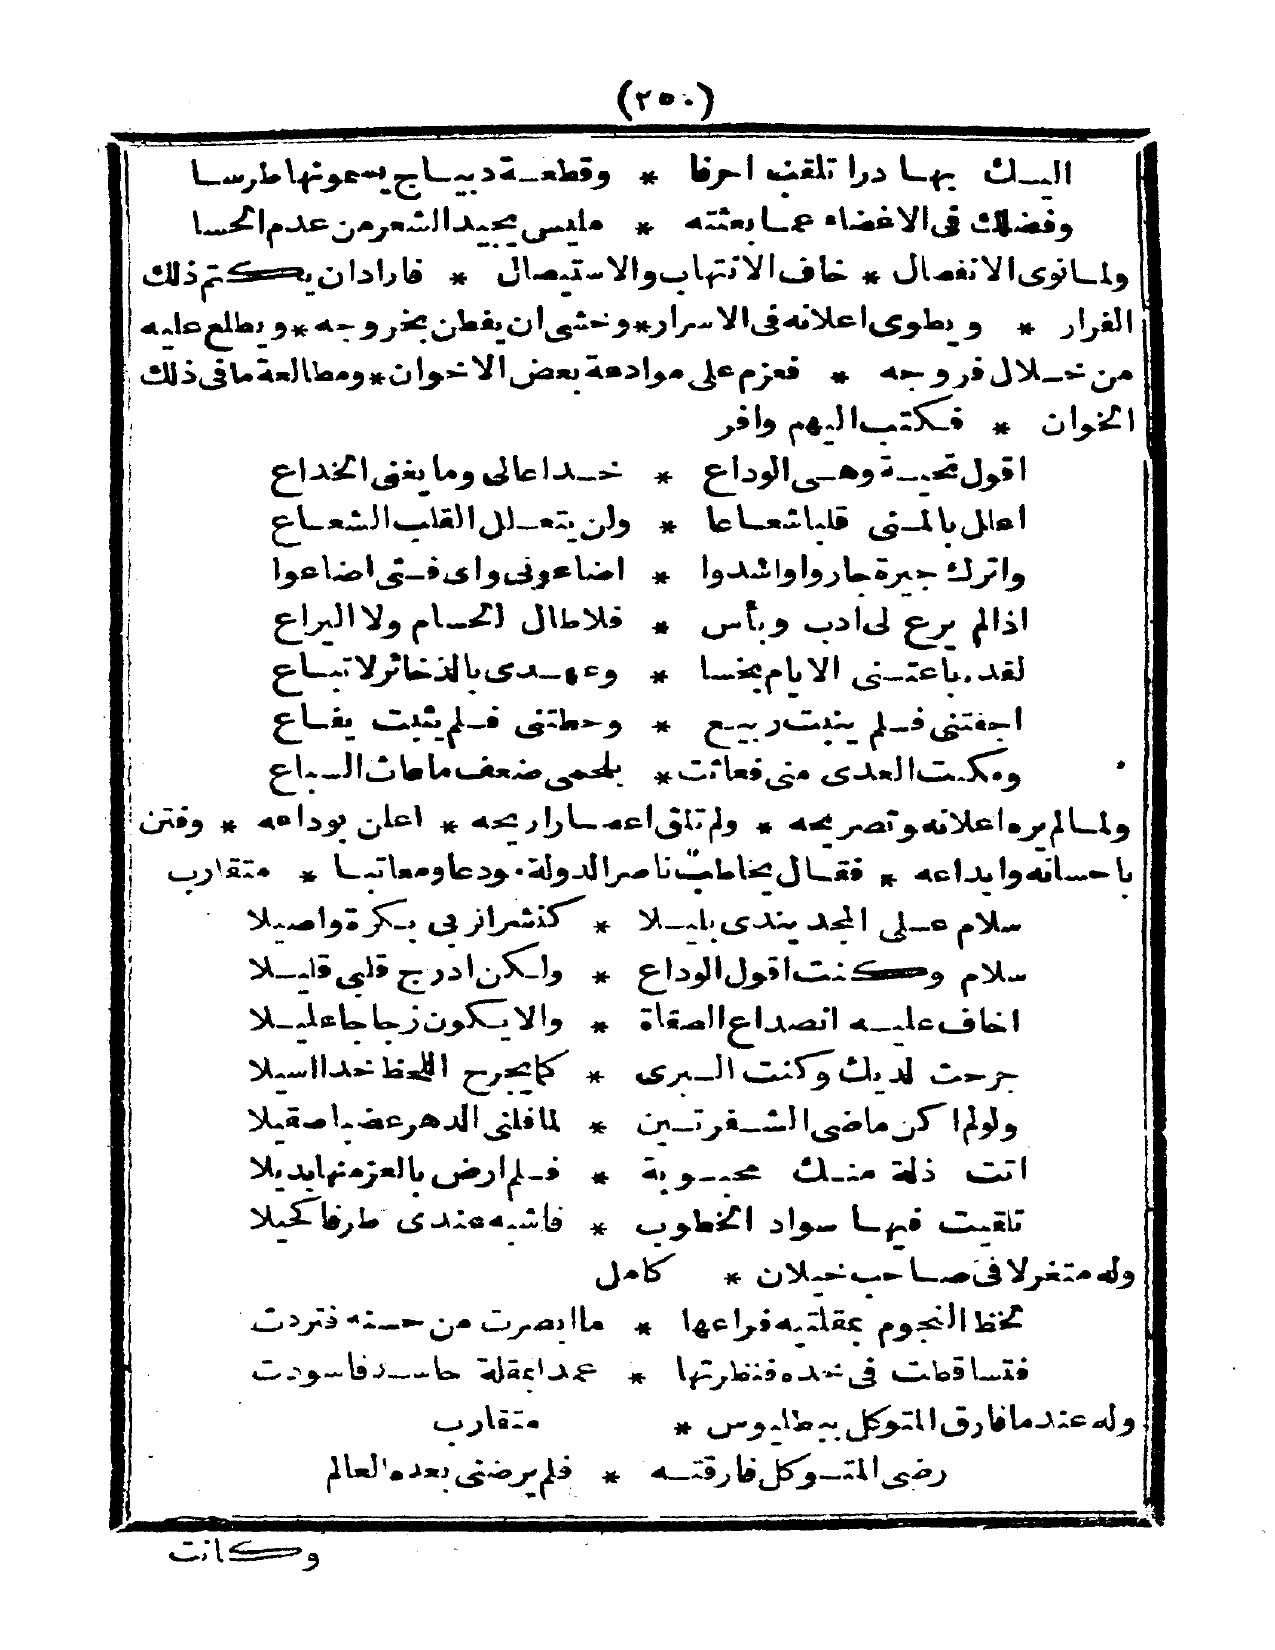 (٢٥٠)
اليـك بهـا درا تلقب احرفا * وقطعـة ديبـاج يسمونها طرسـا
وفضلك فى الاغضاء عمـا بعثته * مليس يجيد الشعر من عدم الحسا
ولمـا نوى الانفصال * خاف الانتهاب والاستيصال * فارادان يكتم ذلك
الفرار * ويطوى اعلانه فى الاسرار * وخشى ان يفطن بخروجه * ويطلع عليه
من خـلال فروجه * فعزم على موادعة بعض الاخوان * ومطالعة ما فى ذلك
الخوان * فـكتب اليهم وافر
اقول تحيـة وهـى الوداع * خـداعا لى وما يغنى الخداع
اعلل بالمـنى قلبا شعـاعا * ولن يتعـلل القلب الشعـاع
واترك جيرة جاروا واشدوا * اضاعونى واى فـتى اضاعوا
اذا لم يرع لى ادب وبأس * فلا طال الحسام ولا اليراع
لقد باعتـنى الايام بخسا * وعهـدى بالذخائر لا تبـاع
اجفتنى فـلم ينبت ربيـع * وحطتنى فـلم يثبت يفـاع
ومكـنت العدى منى فعاثت * بلحمى ضعف ما عاث السباع
ولمـا لم يره اعلانه وتصريحه * ولم تلق اعصـارا ريحه * اعلن بوداعه * وفتن
باحسانه وابداعه * فقـال يخاطب ناصر الدولة مودعا ومعاتبـا * متقارب
سلام عـلى المجد يندى بليـلا * كنشر الربى بـكرة واصيلا
سلام وكنت اقول الوداع * ولـكن ادرج قلبى قليـلا
اخاف عليـه انصداع الصفاة * والا يـكون زجاجا عليـلا
جرحت لديك وكنت الـبرى * كما يجرح اللحظ خدا اسيلا
ولولم اكن ماضى الشـفرتـين * لما فلنى الدهر عضبا صقيلا
اتت ذلة منـك محبـوبة * فـلم ارض بالعز منها بديلا
تلقيت فيهـا سواد الخطوب * فاشبه عندى طرفا كحيلا
وله متغزلا فى صـاحب خيلان * كامل
لحظ النجوم بمقلتيه فراعها * ما ابصرت من حسنه فتردت
فتساقطت فى خده فنظرتها * عمـدا بمقلة حاسـد فاسودت
وله عند ما فارق المتوكل ببطليوس * متقارب
رضى المتـوكل فارقتـه * فلم يرضنى بعده العالم
وكانت